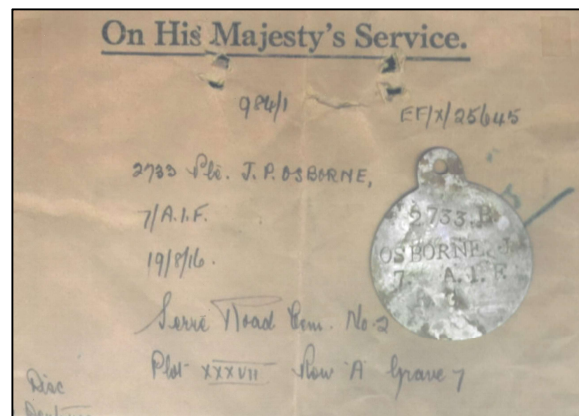 On His Majesty's Service.
984/1
EF/X/25645
2733 Pte. J. P. OSBORNE,
7/A.I.F.
19/8/16.
Serre Road Cem. No. 2
Plot XXXVII Row 'A' Grave 7
Disc
2733. P.
OSBORNE. J.
7. A.I.F.